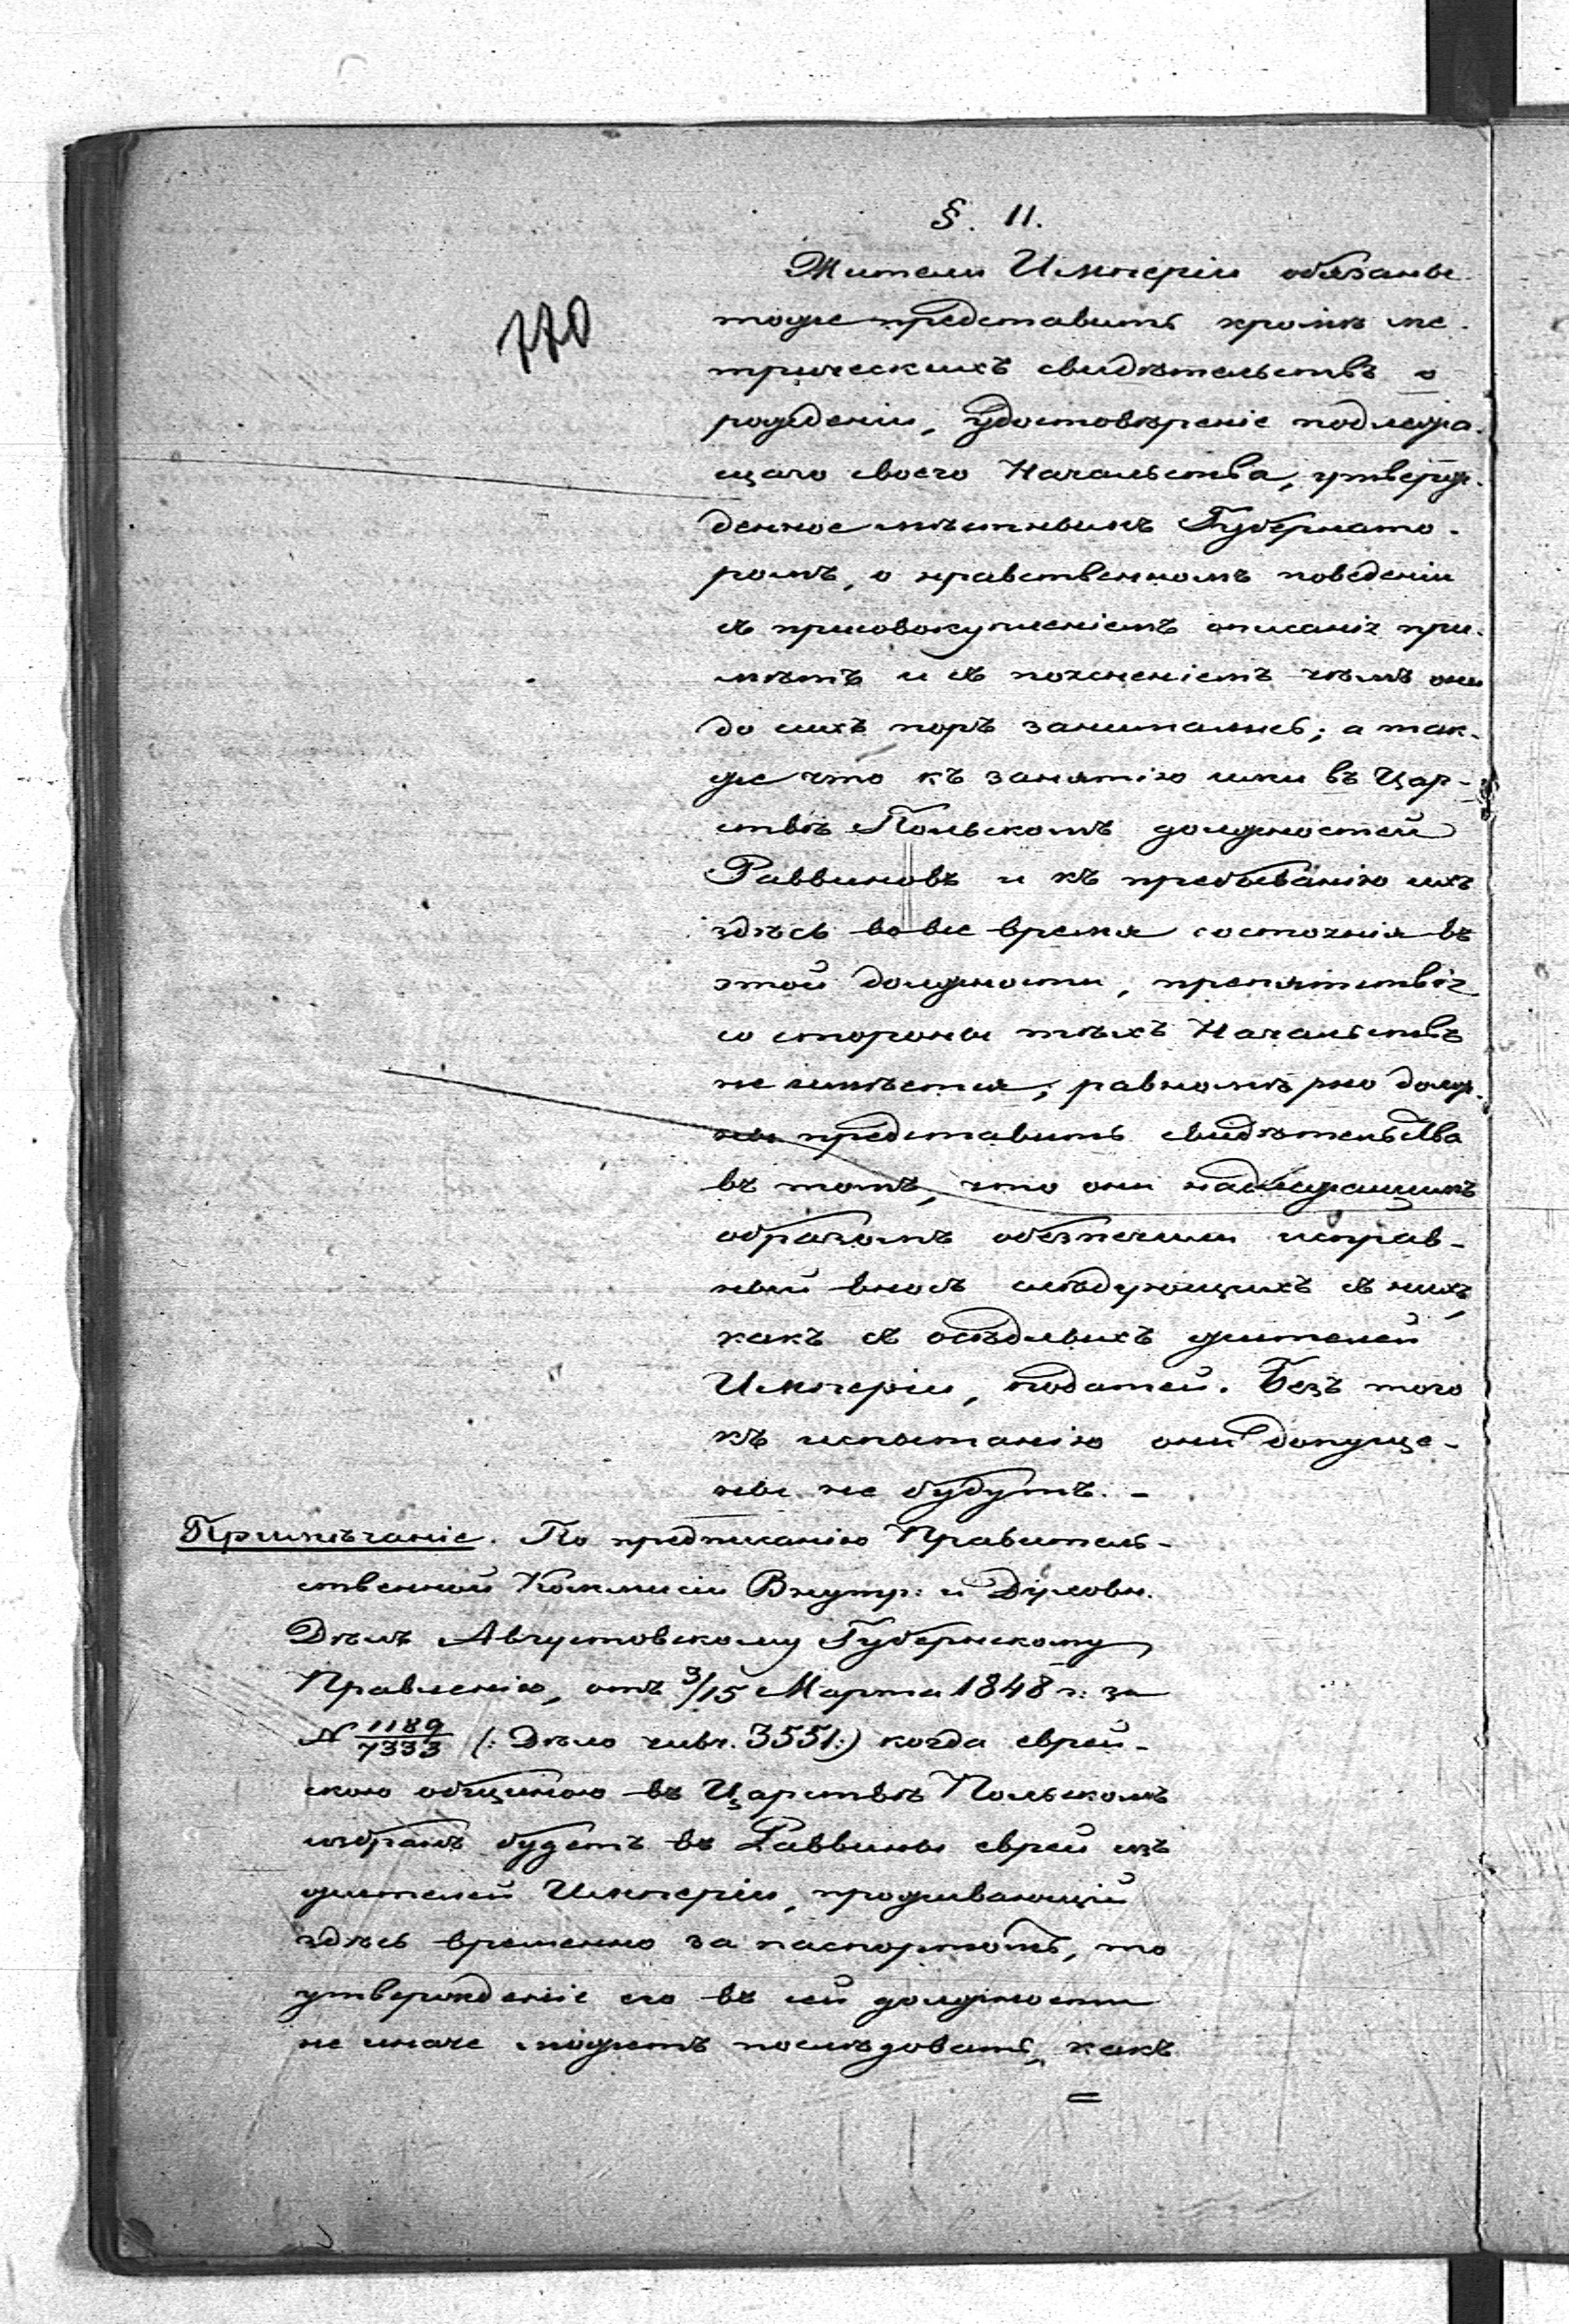 §. 11.
770
Жители Имперіи обязаны
тоже представить кромѣ ме-
трическихъ свидѣтельствъ о
рожденіи, удостовѣреніе подлежа-
щаго своего Начальства, утверж-
денное мѣстнымъ Губернато-
ромъ, о нравственномъ поведеніи
съ присовокупленіемъ описанія при-
мѣтъ и съ поясненіемъ чѣмъ они
до сихъ поръ занимались; а так-
же что къ занятію ими въ Цар-
ствѣ Польскомъ должностей
Раввиновъ и къ пребыванію ихъ
здѣсь во все время состоянія въ
этой должности, препятствія
со стороны тѣхъ Начальствъ
не имѣется; равномѣрно долж-
ны представить свидѣтельства
въ томъ, что они надлежащимъ
образомъ обезпечили исправ-
ный вносъ слѣдующихъ съ нихъ,
какъ съ осѣдлыхъ жителей
Имперіи, податей. Безъ того
къ испытанію они допуще-
ны не будутъ. -
Примѣчаніе. По предписанію Правитель-
ственной Коммисіи Внутр: и Духовн.
Дѣлъ Августовскому Губернскому
Правленію, отъ 3/15 Марта 1848 г: за
N 1189/7333 (: Дѣло 3551:) когда еврей-
скою общиною въ Царствѣ Польскомъ
избранъ будетъ въ Раввины еврей изъ
жителей Имперіи, проживающій
здѣсь временно за паспортомъ, то
утвержденіе его въ сей должности
не иначе можетъ послѣдовать, какъ
=